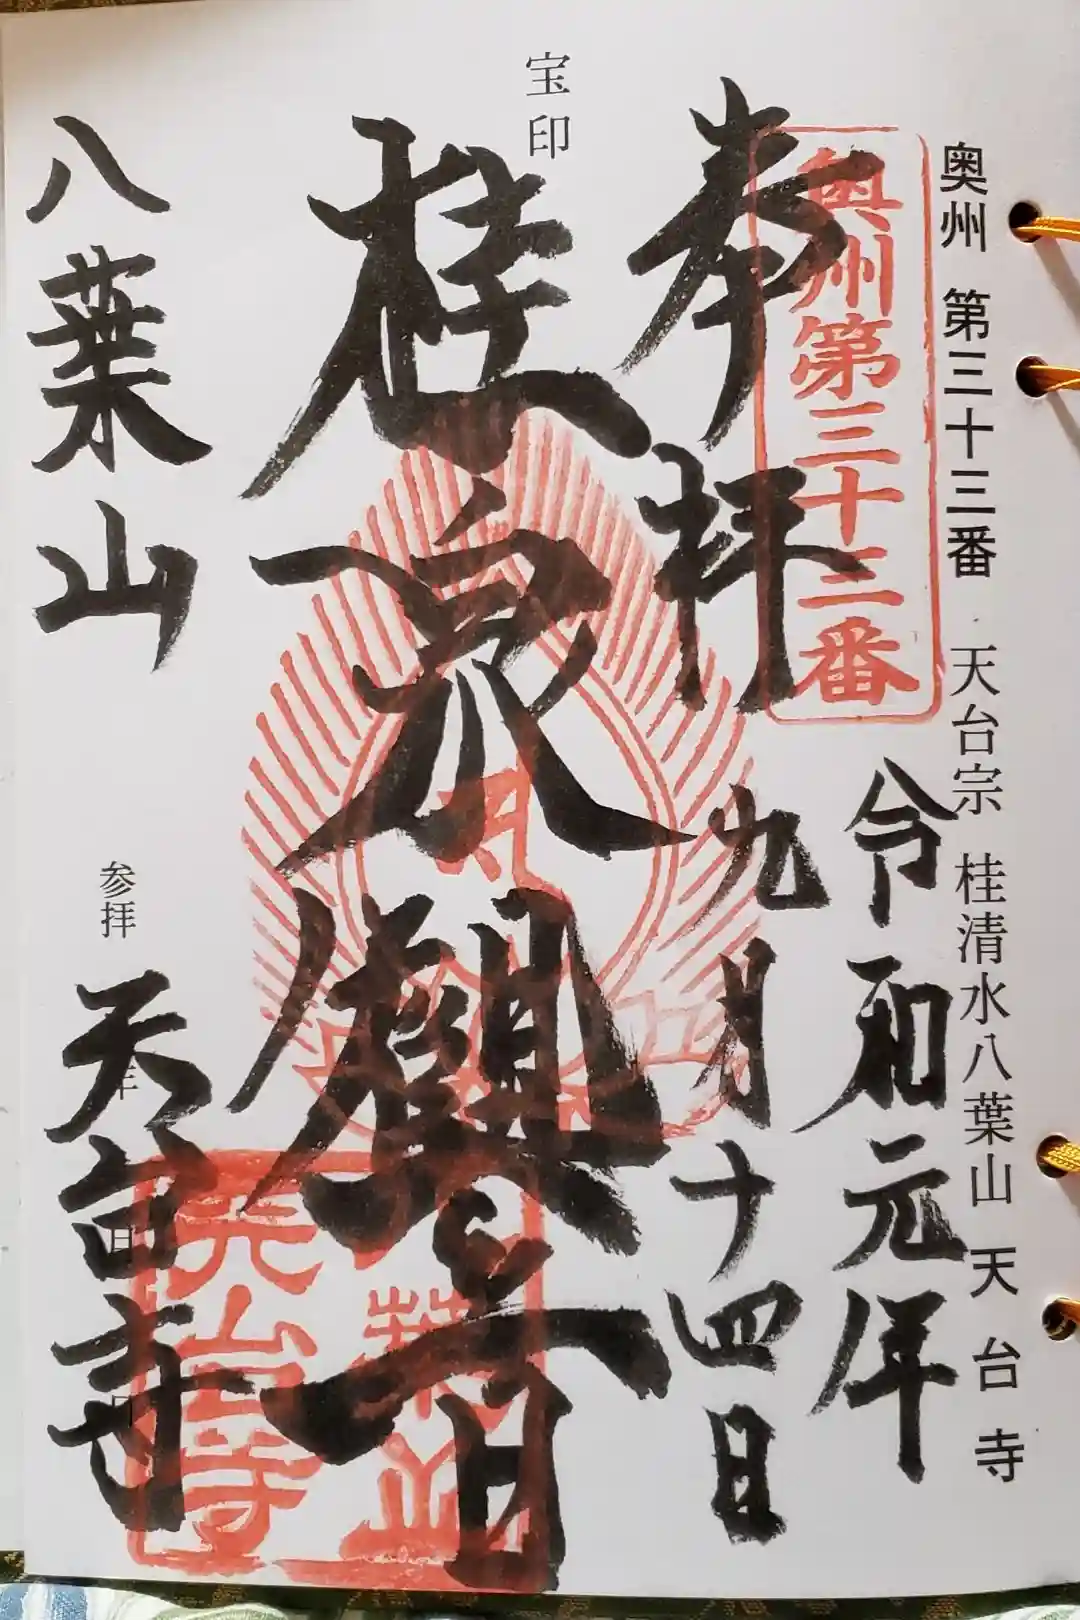 奥州 第三十三番 天台宗 桂清水八葉山 天台寺
奥州第三十三番
令和元年
奉拝
九月十四日
宝印
桂泉觀音
八葉山
参拝 年 日
天台寺